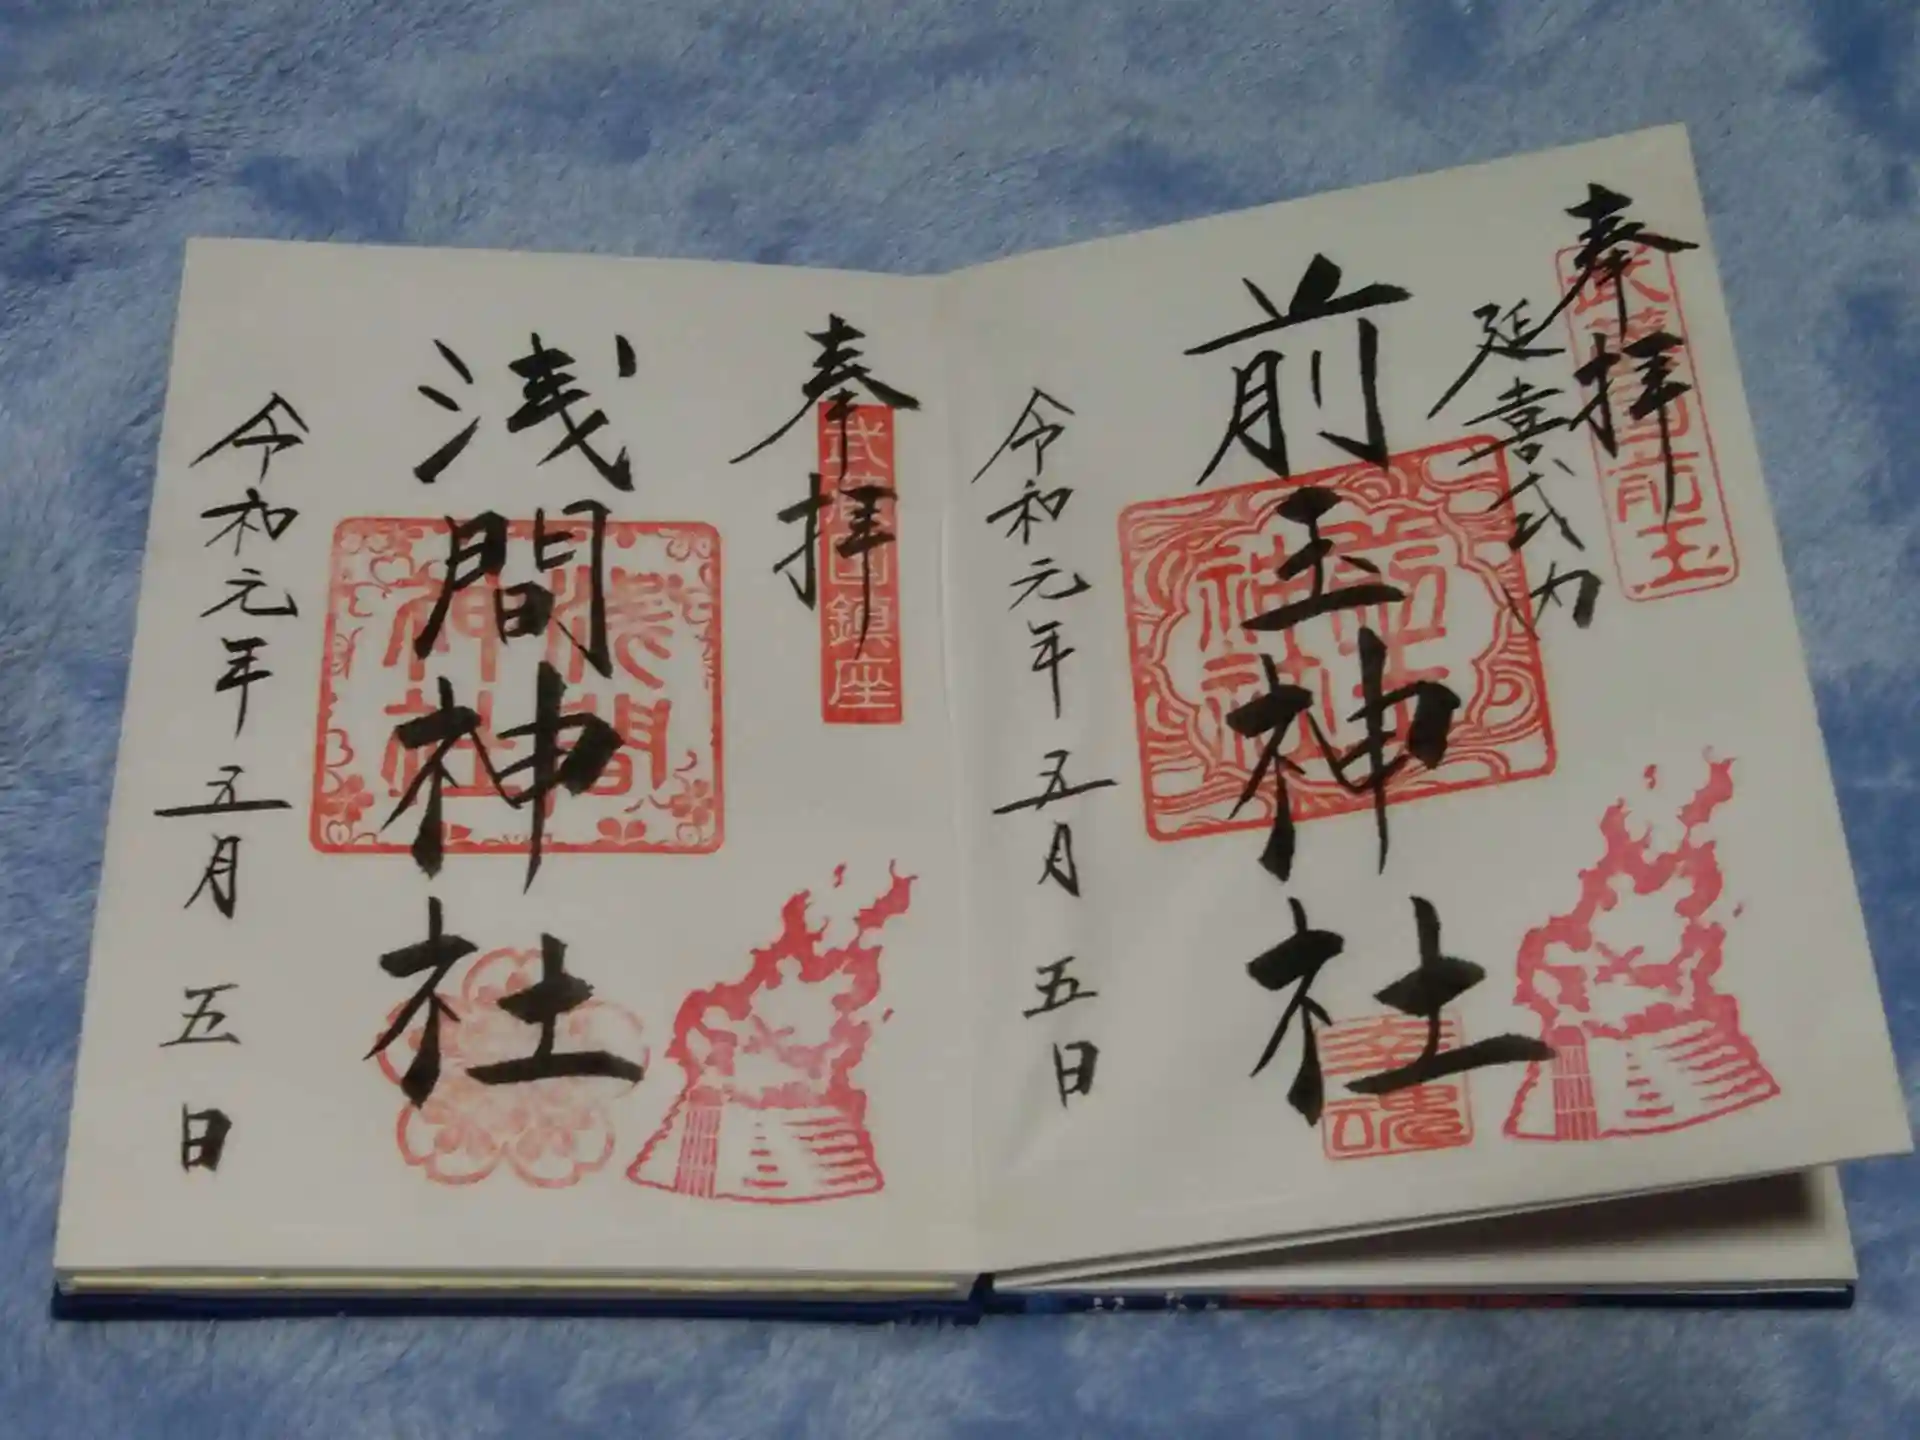 奉拝
延喜式内
武蔵国前玉
前玉神社
前玉神社
幸魂
令和元年五月五日
奉拝
武蔵国鎮座
浅間神社
浅間神社
令和元年五月五日